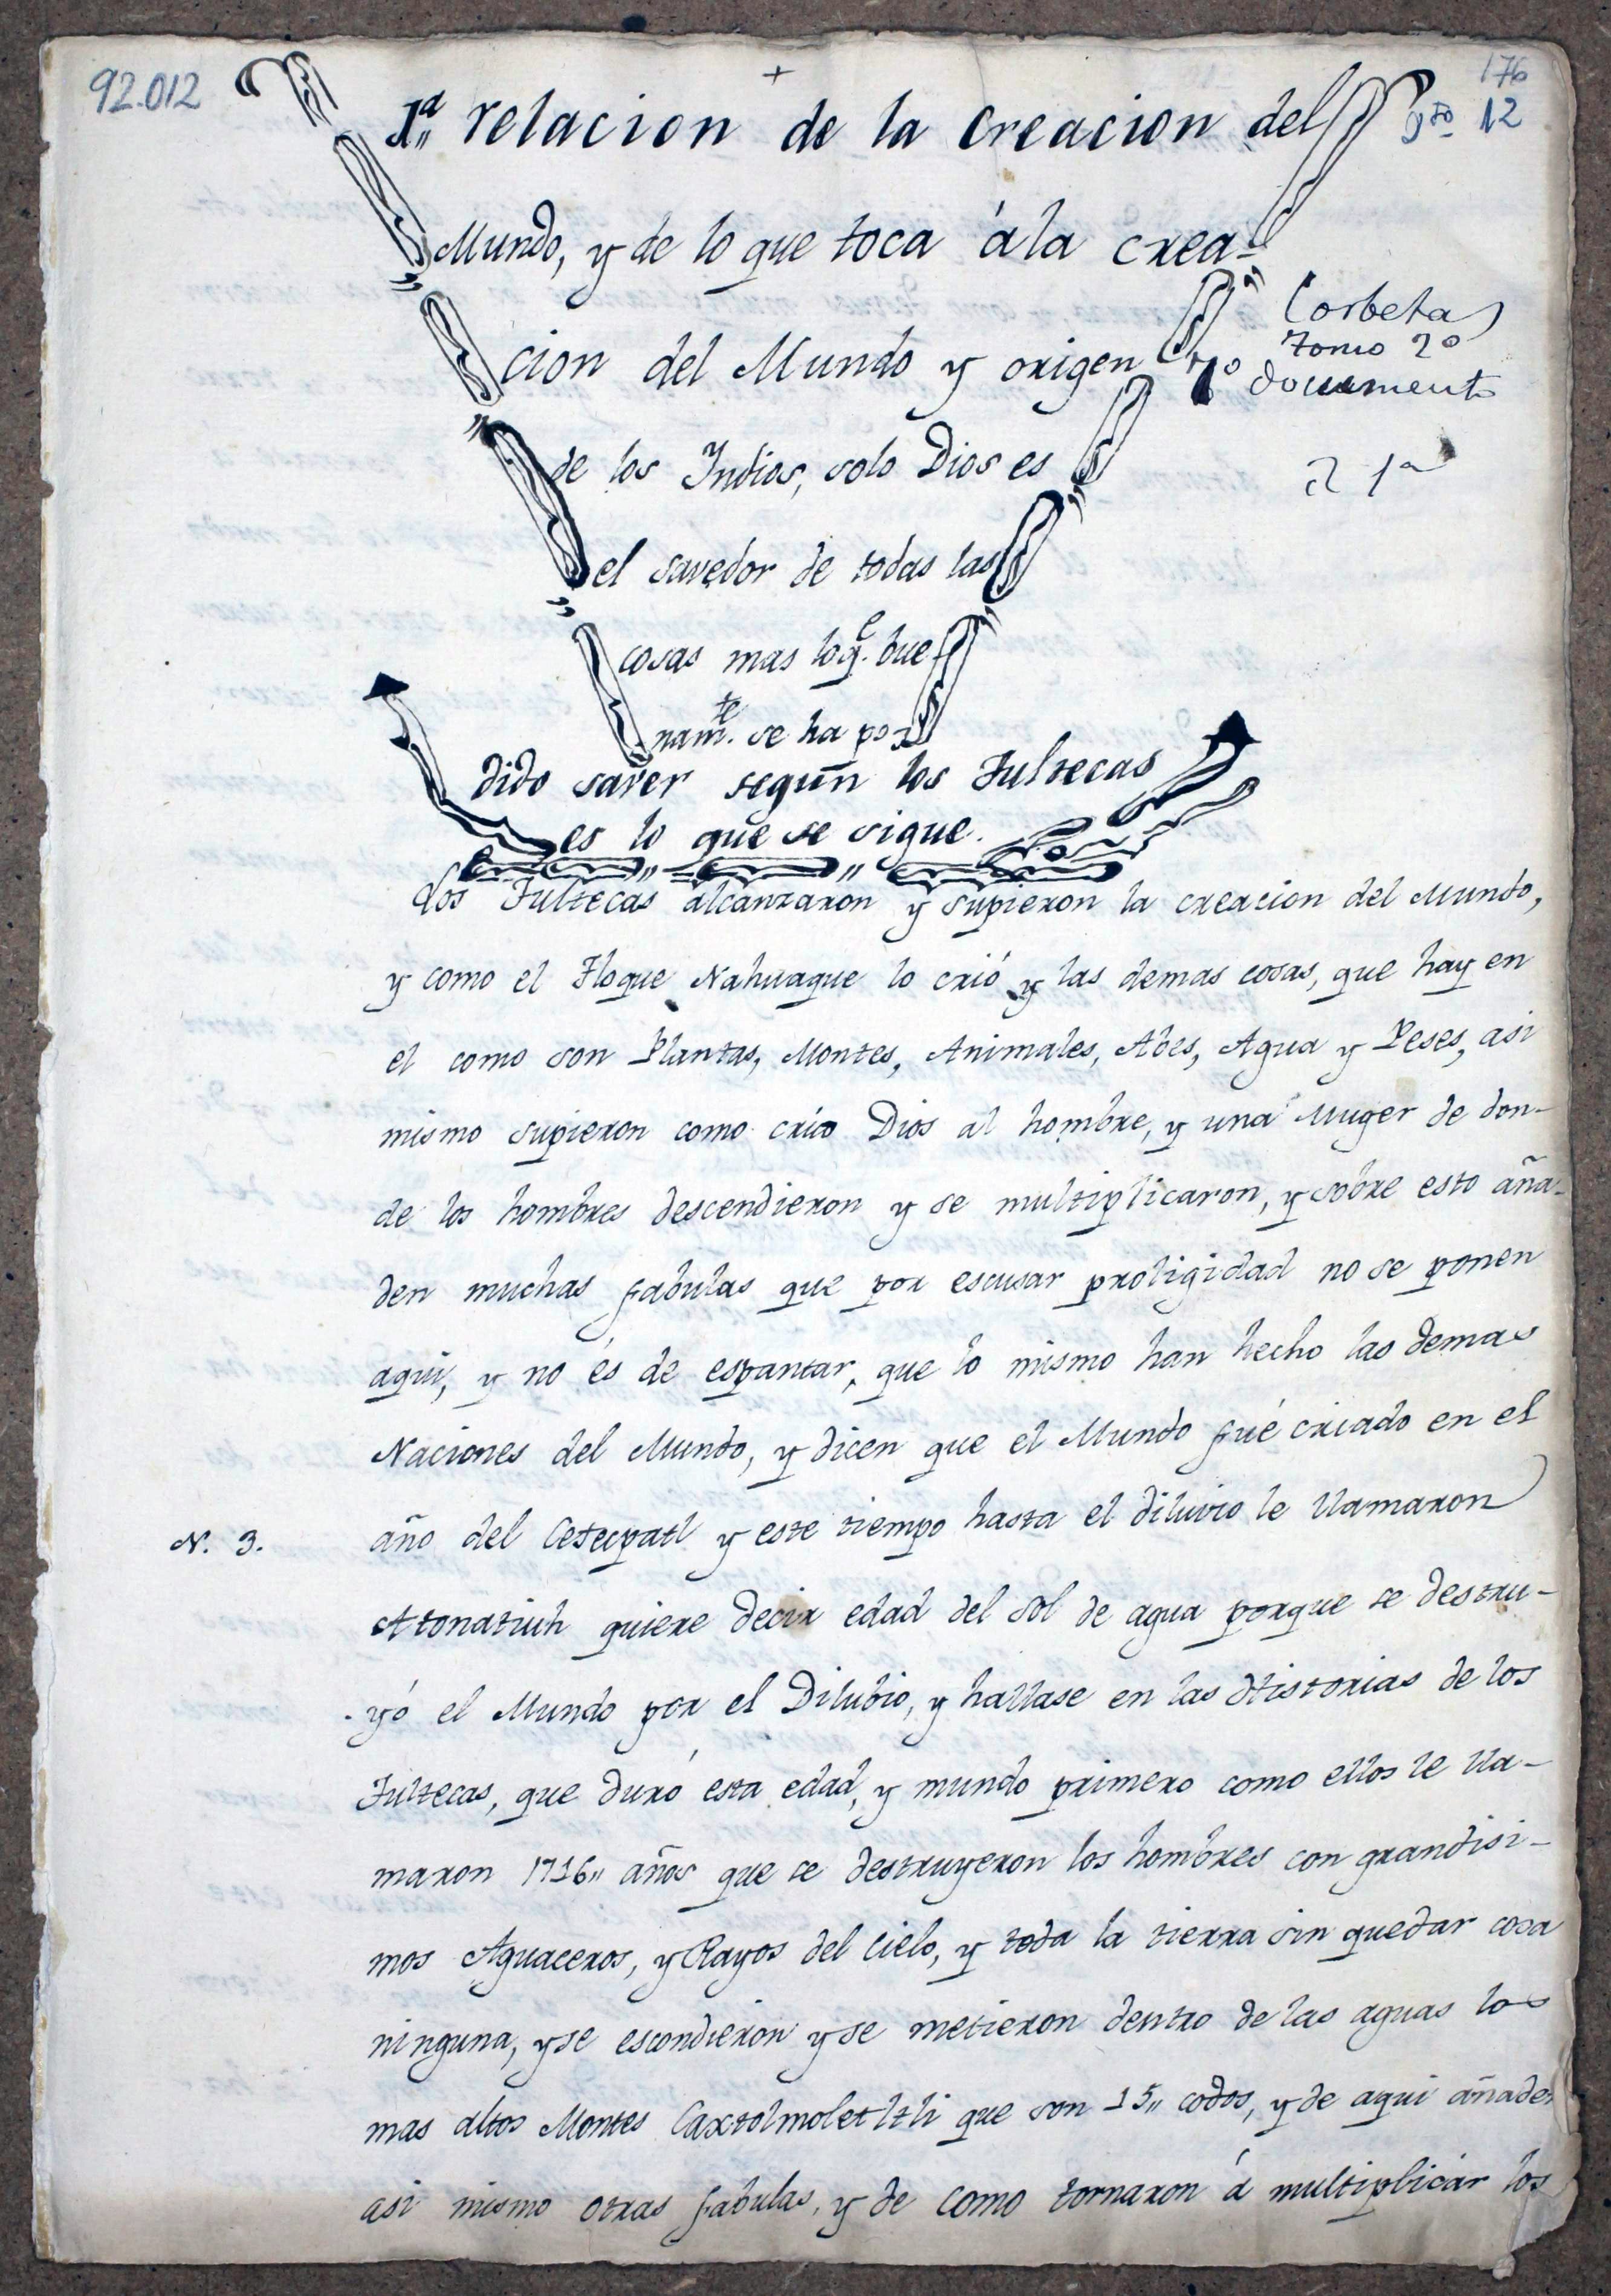 92.012
176
+
1ª relacion de la Creacion del
Pto 12
Mundo, y de lo que toca á la crea-
cion del Mundo y origen
Corbeta
tomo 2º
1º documento
de los Indios, solo Dios es
2 1ª
el savedor de todas las
cosas mas lo q.e bue-
nam.te se ha po-
dido saver según los Tultecas
es lo que se sigue.
Los Tultecas alcanzaron y supieron la creacion del Mundo,
y como el Tloque Nahuaque lo crió y las demas cosas, que hay en
el como son Plantas, Montes, Animales, Abes, Agua y Peses, asi
mismo supieron como crio Dios al hombre, y una Muger de don-
de los hombres descendieron y se multiplicaron, y sobre esto aña-
den muchas fabulas que por escusar proligidad no se ponen
aqui, y no és de espantar, que lo mismo han hecho las demas
Naciones del Mundo, y dicen que el Mundo fué criado en el
N. 3.
año del Cetecpatl y este tiempo hasta el diluvio le llamaron
Atonatiuh quiere decir edad del sol de agua porque se destru-
yó el Mundo por el Dilubio, y hallase en las Historias de los
Tultecas, que duró esta edad, y mundo primero como ellos le lla-
maron 1716,, años que se destruyeron los hombres con grandisi-
mos Aguaceros, y Rayos del Cielo, y toda la tierra sin quedar cosa
ninguna, y se escondieron y se metieron dentro de las aguas los
mas altos Montes Caxtolmoletltli que son 15,, codos, y de aqui añaden
asi mismo otras fabulas, y de como tornaron á multiplicar los